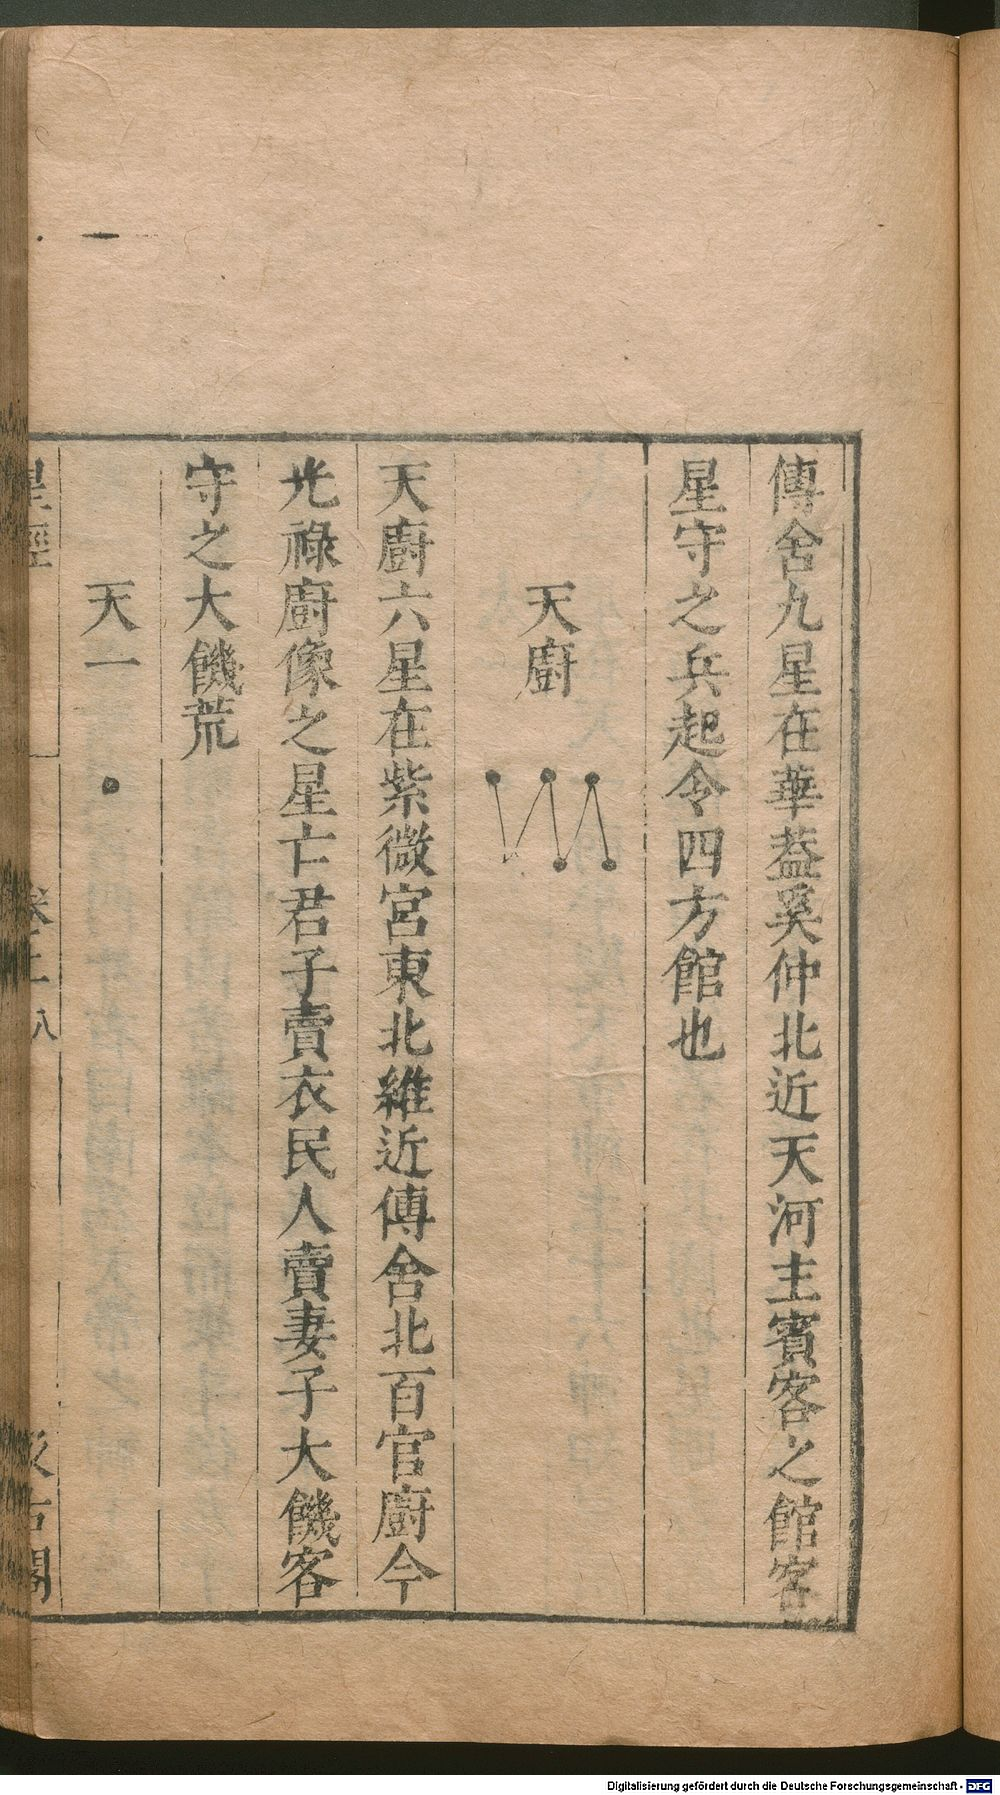 傳舍九星在華葢奚仲北近天河主賓客之館客
星守之兵起令四方館也
天廚
天廚六星在紫微宮東北維近傳舍北百官廚今
光祿廚像之星亡君子賣衣民人賣妻子大饑客
守之大饑荒
天一
星經
卷上
八
汲古閣
Digitalisierung gefördert durch die Deutsche Forschungsgemeinschaft - DFG